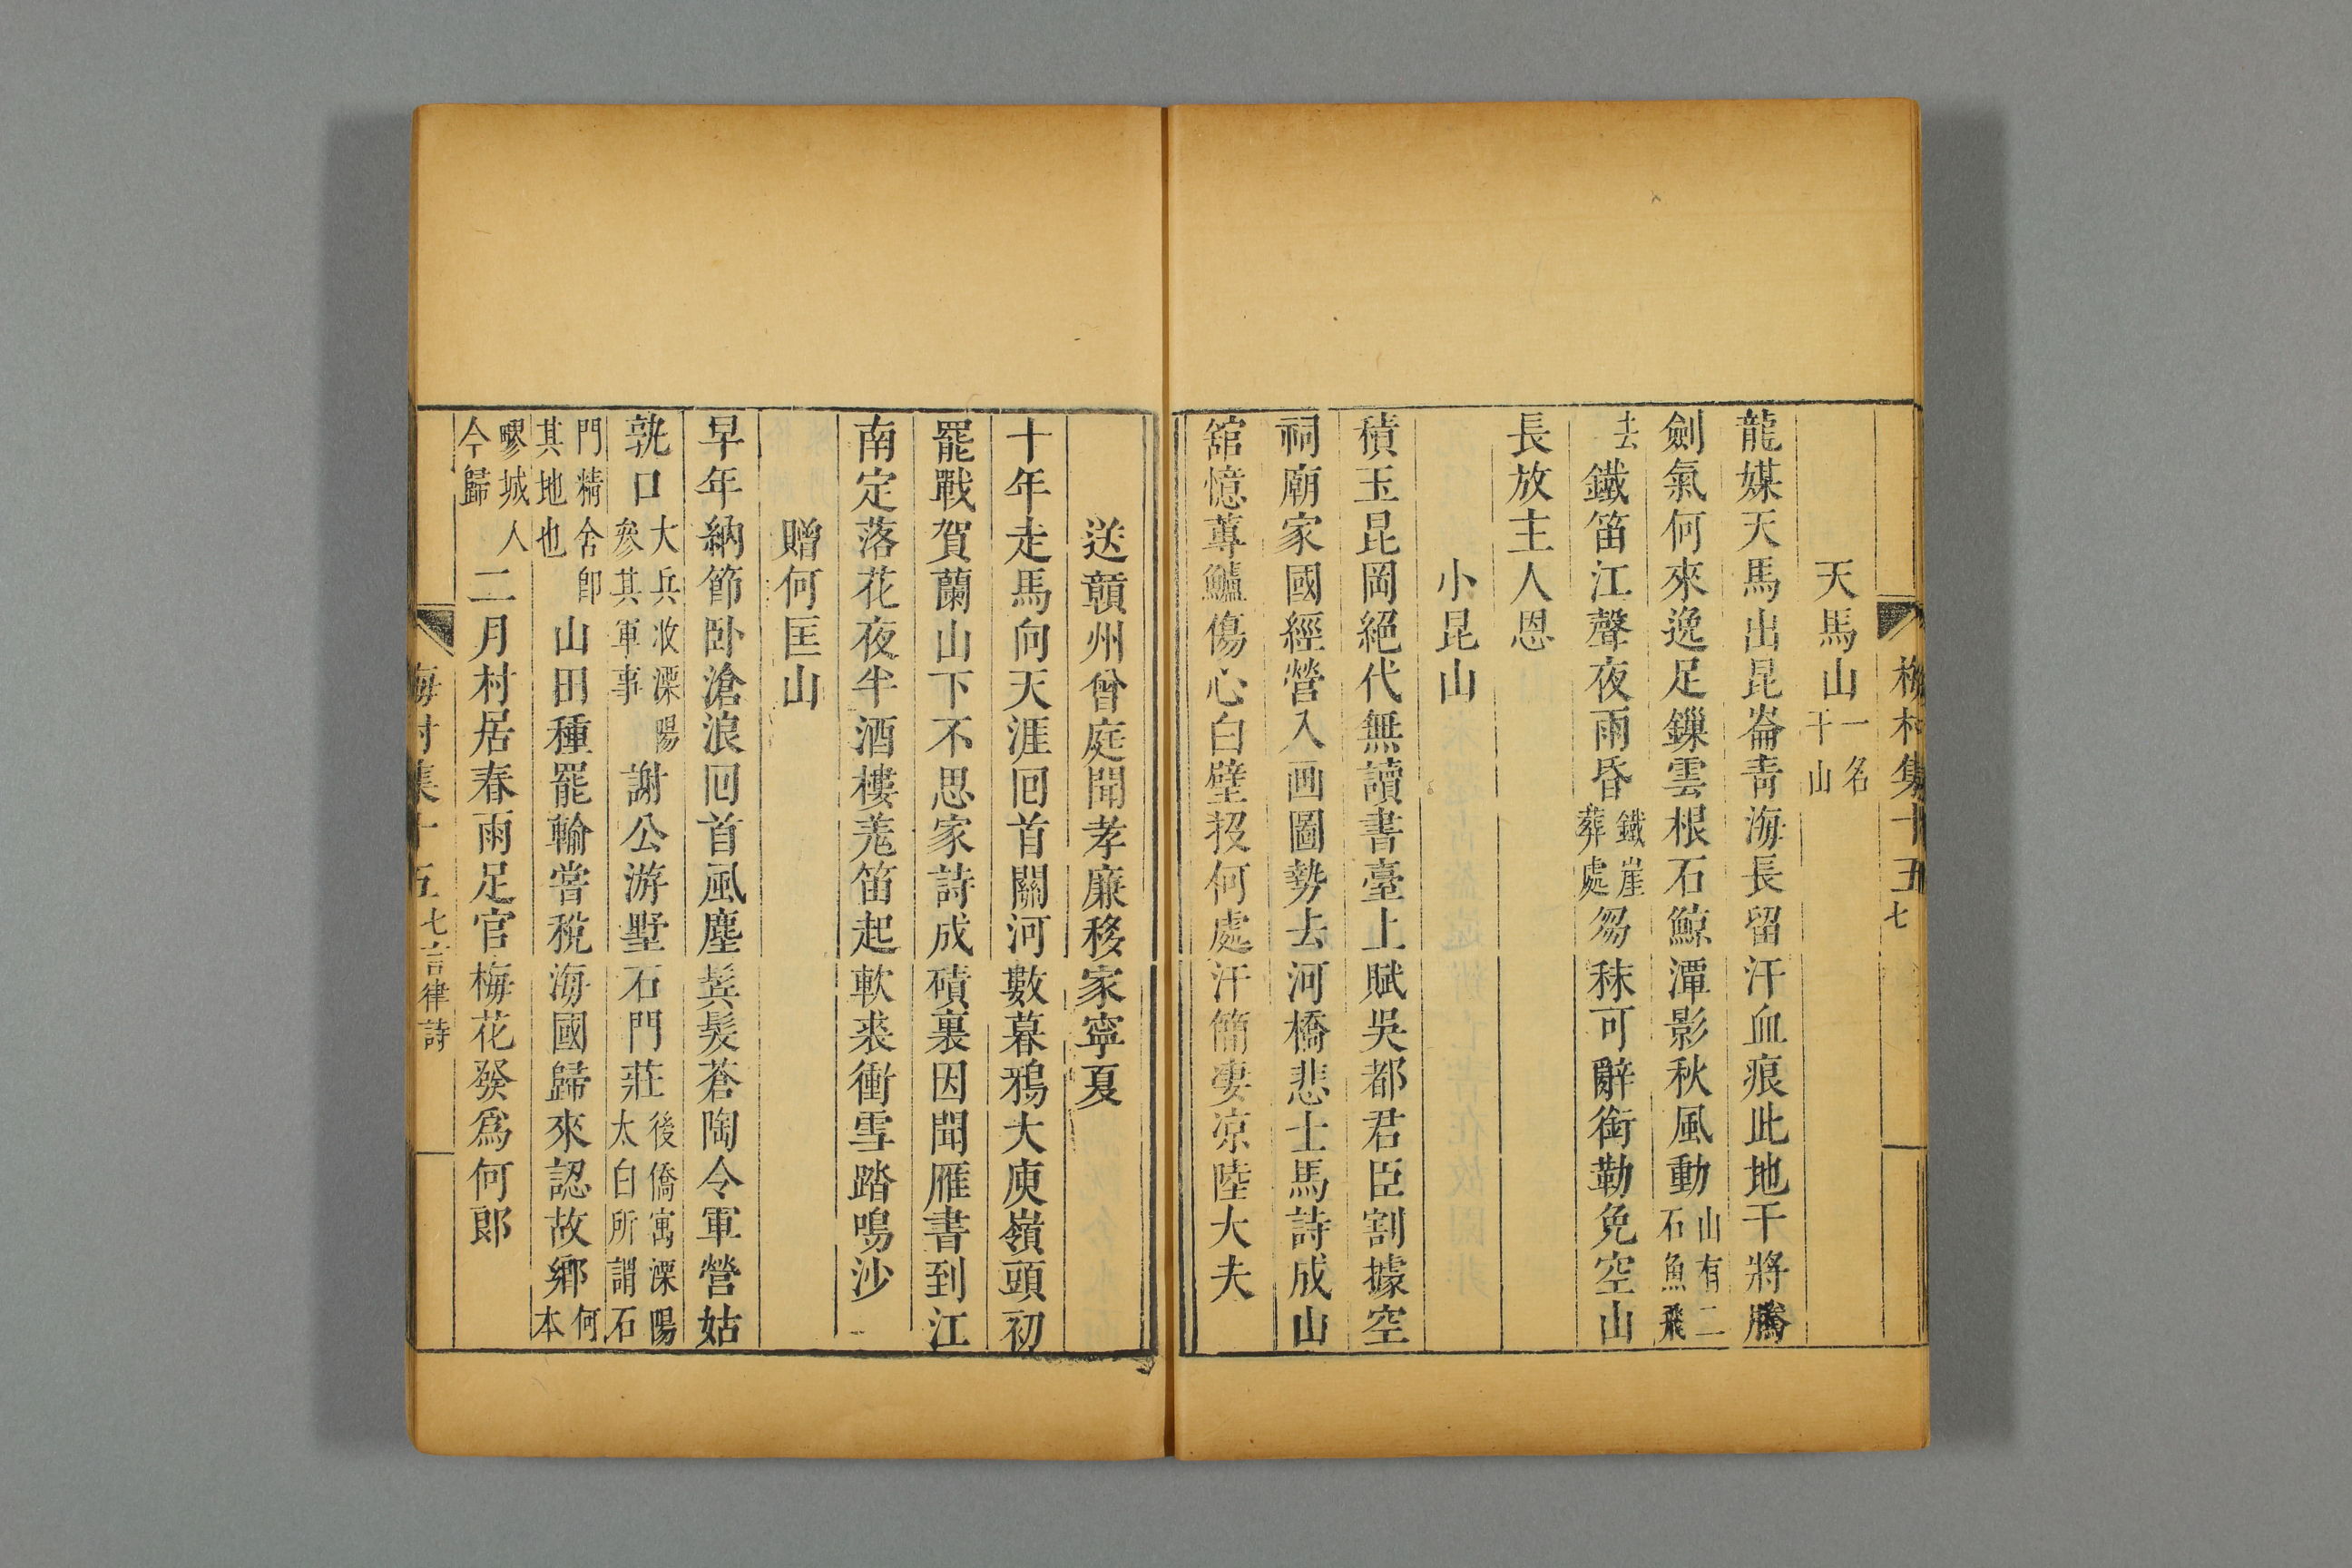 梅村集十五 七
天馬山一名干山
龍媒天馬出昆崙靑海長留汗血痕此地干將騰
劍氣何來逸足鏁雲根石鯨潭影秋風動山有二石魚飛
去鐵笛江聲夜雨昏鐵崖葬處芻秣可辭銜勒免空山
長放主人恩
小昆山
積玉昆岡絕代無讀書臺上賦吳都君臣割據空
祠廟家國經營入画圖勢去河橋悲士馬詩成山
舘憶蓴鱸傷心白璧投何處汗簡凄凉陸大夫
送贛州曾庭聞孝廉移家寧夏
十年走馬向天涯回首關河數暮鴉大庾嶺頭初
罷戰賀蘭山下不思家詩成磧裏因聞雁書到江
南定落花夜半酒樓羗笛起軟裘衝雪踏鳴沙
贈何匡山
早年納節卧滄浪回首風塵鬂髮蒼陶令軍營姑
孰口大兵收溧陽叅其軍事謝公游墅石門莊後僑寓溧陽太白所謂石
門精舍卽其地也山田種罷輸嘗稅海國歸來認故鄉何本
郻城人今歸二月村居春雨足官梅花發爲何郎
梅村集十五 七言律詩